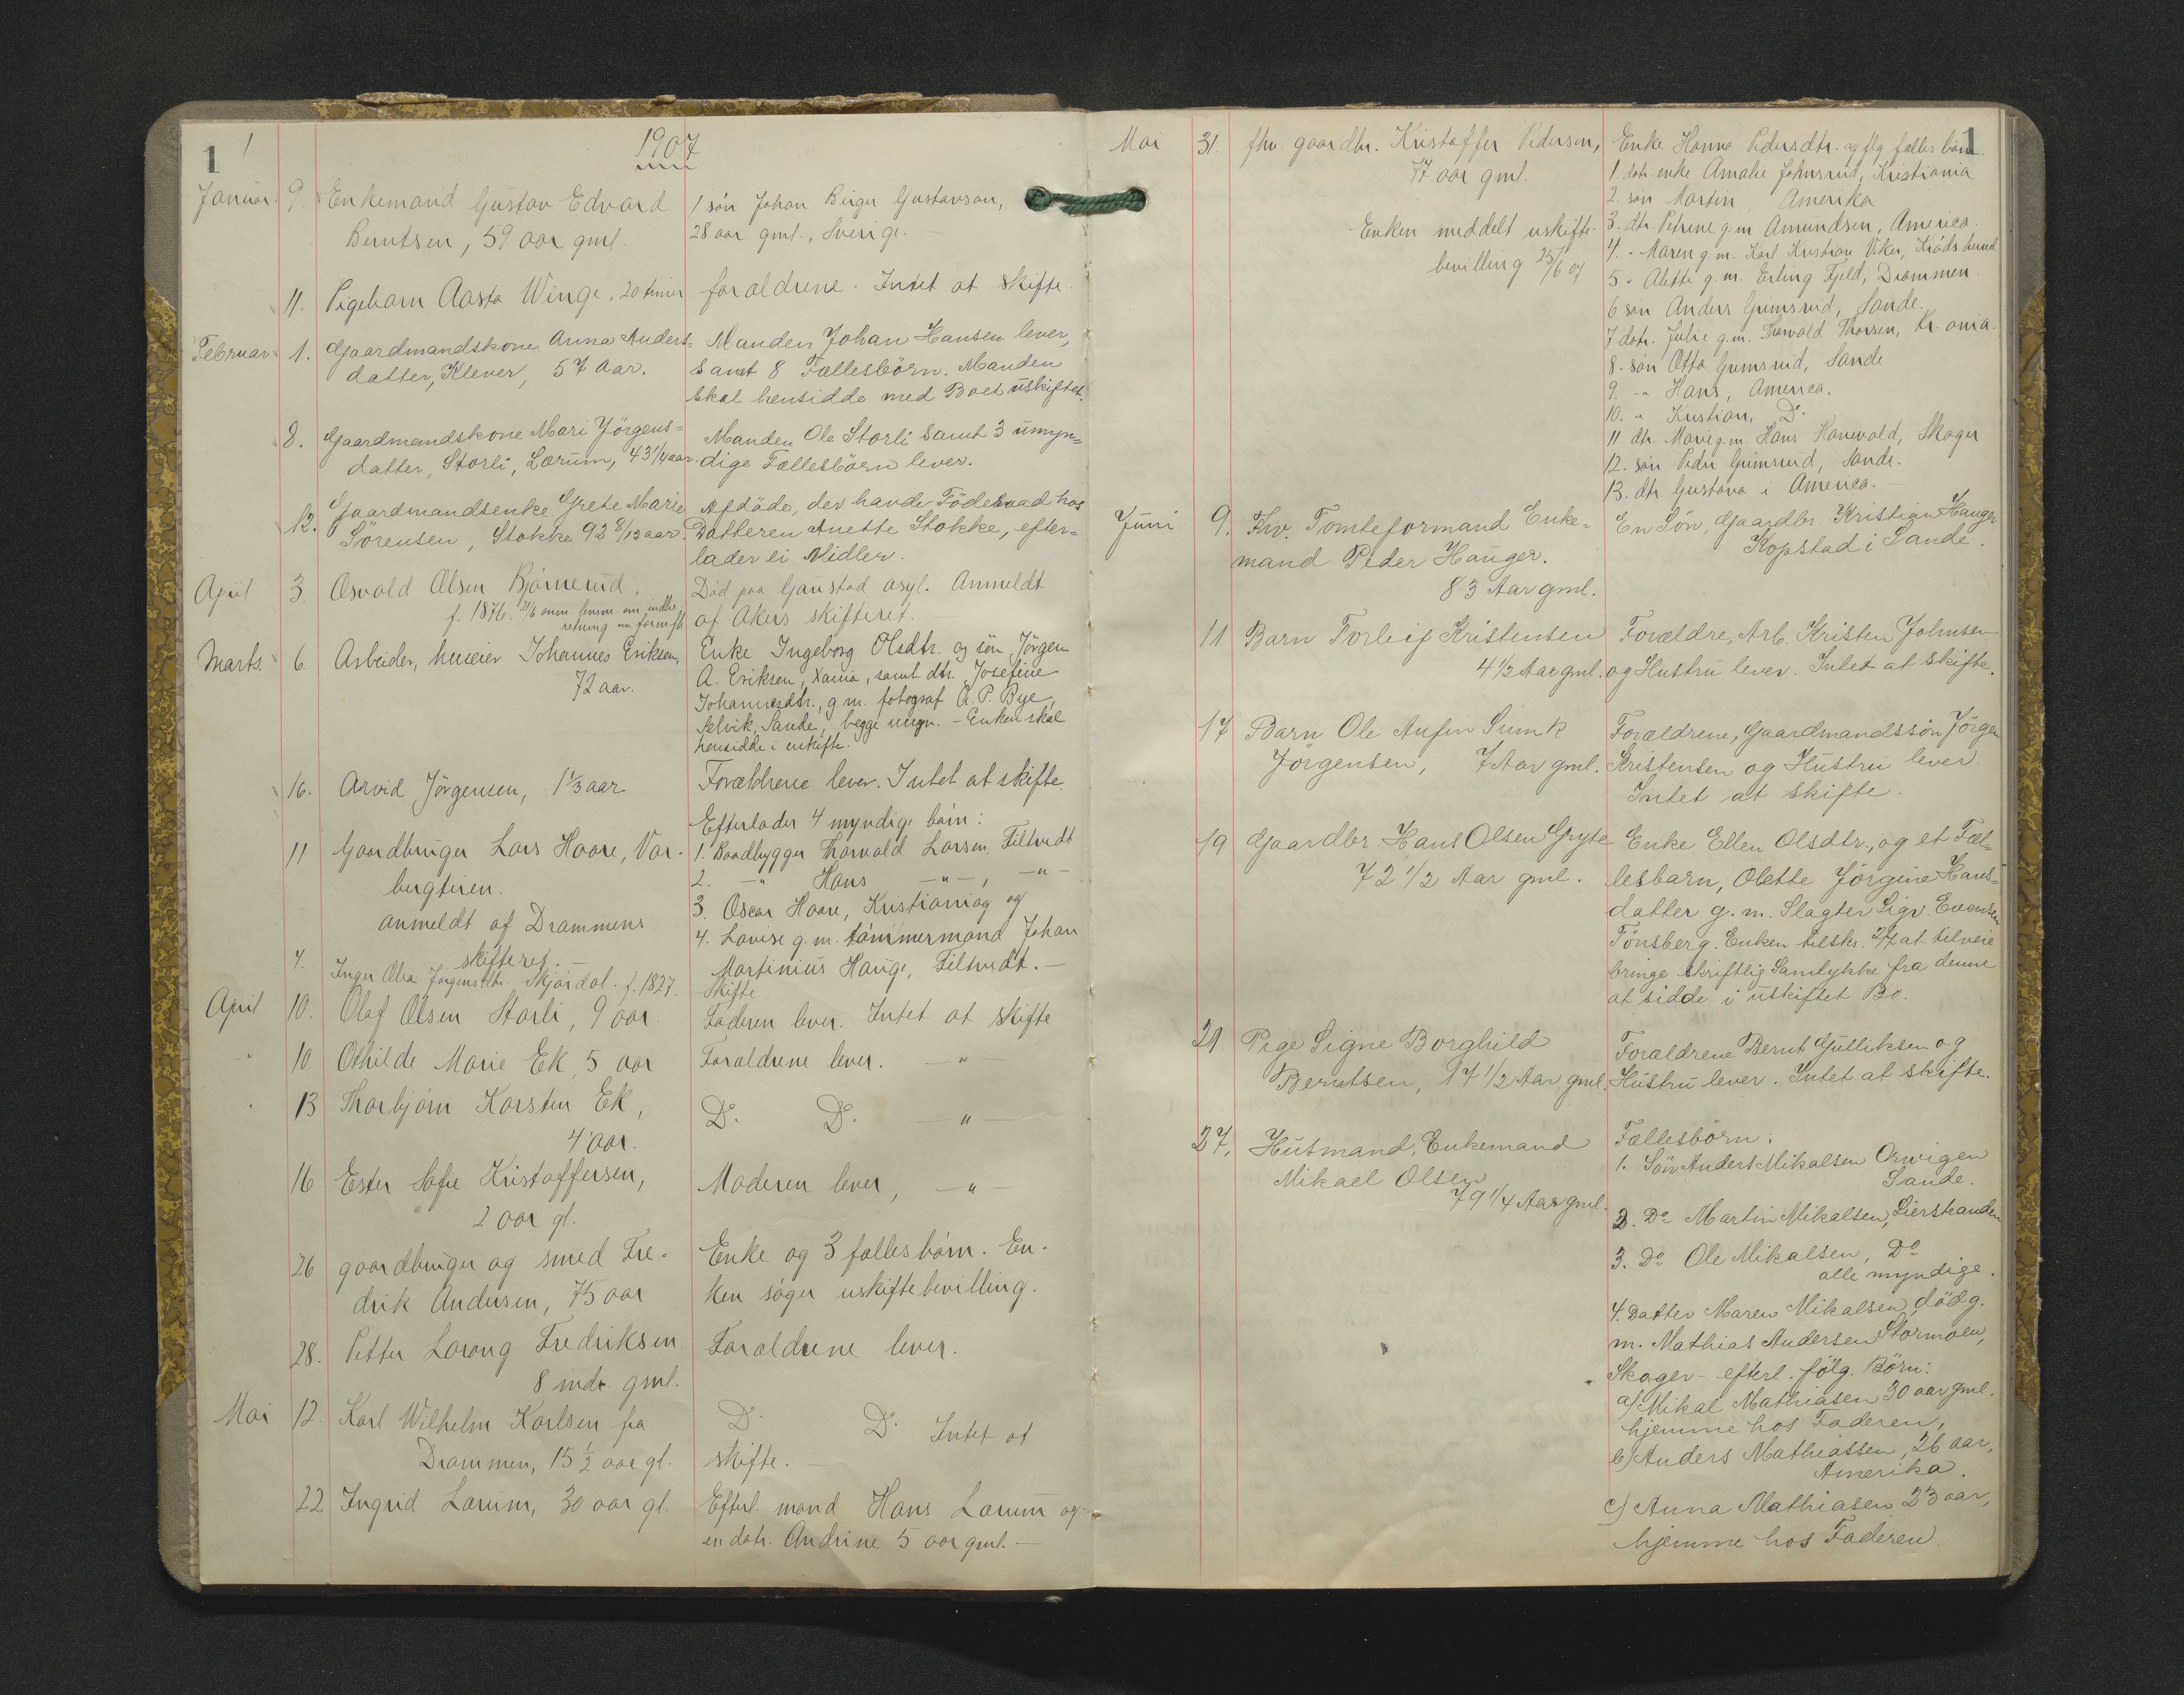 1 1
1907
Januar 9. Enkemand Gustav Edvard
Berntsen, 59 aar gml.
1 sön Johan Birger Gustavson,
28 aar gml., Sverige.
11. Pigebarn Aasta Winge, 20 timer
forældrene. Intet at skifte.
Februar 1. Gaardmandskone Anna Anders-
datter, Klever, 57 Aar.
Manden Johan Hansen lever,
samt 8 Fællesbörn. Manden
skal hensidde med Boet uskiftet.
8. Gaardmandskone Mari Jörgens-
datter, Storli, Lærum, 43 1/4 aar.
Manden Ole Storli samt 3 umyn-
dige Fællesbörn lever.
12. Gaardmandsenke Grete Marie
Sörensen, Stokke 92 8/12 aar.
Afdöde, der havde Föderaad hos
Datteren Anette Stokke, efter-
lader ei Midler.
April 3. Osvald Olsen Björnerud,
f. 1876. 21/6 anm. lensm. om indbe-
retning om formfh.
Död paa Gaustad asyl. Anmeldt
af Akers skifteret.
Marts. 6. Arbeider, huseier Johannes Eriksen,
72 aar.
Enke Ingeborg Olsdtr. og sön Jörgen
A. Eriksen, Xania, samt dtr. Josefine
Johannesdtr., g.m. fotograf A. P. Bye,
Selvik, Sande, begge myn. - Enken skal
hensidde i uskifte.
16. Arvid Jörgensen, 1 1/3 aar
Forældrene lever. Intet at skifte.
11 Gaardbruger Lars Haare, Var-
bergteien.
anmeldt af Drammens
skifteret. -
Efterlader 4 myndige börn:
1. Baadbygger Thorvald Larsen, Filtvedt
2. -"- Hans -"-, -"-
3. Oscar Haare, Kristiania og
4. Lovise g.m. tömmermand Johan
Martinius Hauge, Filtvedt. -
4. Inger Olea Jörgensdtr. Skjördal. f. 1827.
Skifte
April 10. Olaf Olsen Storli, 9 aar.
Faderen lever. Intet at skifte
" 10 Othilde Marie Ek, 5 aar
Forældrene lever. -"-
" 13 Thorbjörn Karsten Ek,
4 aar.
Do. Do. -"-
16 Ester Sofie Kristoffersen,
2 aar gl.
Moderen lever, -"-
26 gaardbruger og smed Fre-
drik Andersen, 75 aar
Enke og 3 fælles börn. En-
ken söger uskiftebevilling.
28. Petter Lorang Fredriksen
8 mdr. gml.
Forældrene lever.
Mai 12. Karl Wilhelm Karlsen fra
Drammen, 15 1/2 aar gl.
Do. Do. Intet at
skifte. -
22 Ingrid Lærum, 30 aar gl.
Efterl. mand Hans Lærum og
en datr. Andrine 5 aar gml. -
1
Mai 31. fhv. gaardbr. Kristoffer Pedersen,
77 aar gml.
Enken meddelt uskifte-
bevilling 25/6 07
Enke Hanna Pedersdtr. og flg. fælles börn.
1 datr. enke Amalie Johnsrud, Kristiania
2. sön Martin Amerika
3. dtr. Petrine g.m. Amundsen, America.
4. " Maren g.m. Karl Kristian Viker, Krödsherred
5 " Alette g.m. Erling Fjeld, Drammen.
6 sön Anders Grimsrud, Sande.
7 datr. Julie g.m. Harvald Thorsen, Kr.ania.
8. sön Otto Grimsrud, Sande
9. -" Hans, America.
10. " Kristian, Do.
11 dtr. Marie g.m. Hans Hanevold, Skoger
12. sön Peder Grimsrud, Sande.
13. dtr. Gustava i America. -
Juni 9. Fhv. Tomteformand Enke-
mand Peder Hauger.
83 Aar gml.
En Sön, Gaardbr. Kristian Hauger
Kopstad i Sande.
11 Barn Torleif Kristensen
4 1/2 Aar gml.
Forældre, Arb. Kristen Johnsen
og Hustru lever. Intet at skifte.
17 Barn Ole Anfin Sunk
Jörgensen, 7 Aar gml.
Forældrene, Gaardmandssön Jörgen
Kristensen og Hustru lever.
Intet at skifte.
19 Gaardbr Hans Olsen Gryte
72 1/2 Aar gml.
Enke Ellen Olsdtr., og et Fæl-
lesbarn, Olette Jörgine Hans-
datter g.m. Slagter Sigv. Evensen
Tönsberg. Enken tilskr. 2/7 at tilveie
bringe skriftlig Samtykke fra denne
at sidde i uskiftet Bo.
21. Pige Signe Borghild
Berntsen, 17 1/2 Aar gml.
Forældrene Bernt Gulliksen og
Hustru lever. Intet at skifte.
27. Husmand, Enkemand
Mikael Olsen
79 1/4 Aar gml.
Fællesbörn:
1. Sön Anders Mikalsen Orvigen
Sande.
2. Do Martin Mikalsen, Lierstranden
3. Do Ole Mikalsen, Do
alle myndige.
4. Datter Maren Mikalsen död g.
m. Mathias Andersen Stormoen,
Skoger - efterl. fölg. Börn:
a) Mikal Mathiasen 30 aar gml.
hjemme hos Faderen,
b) Anders Mathiassen, 26 aar,
Amerika.
c) Anna Mathiasen 23 aar,
hjemme hos Faderen.